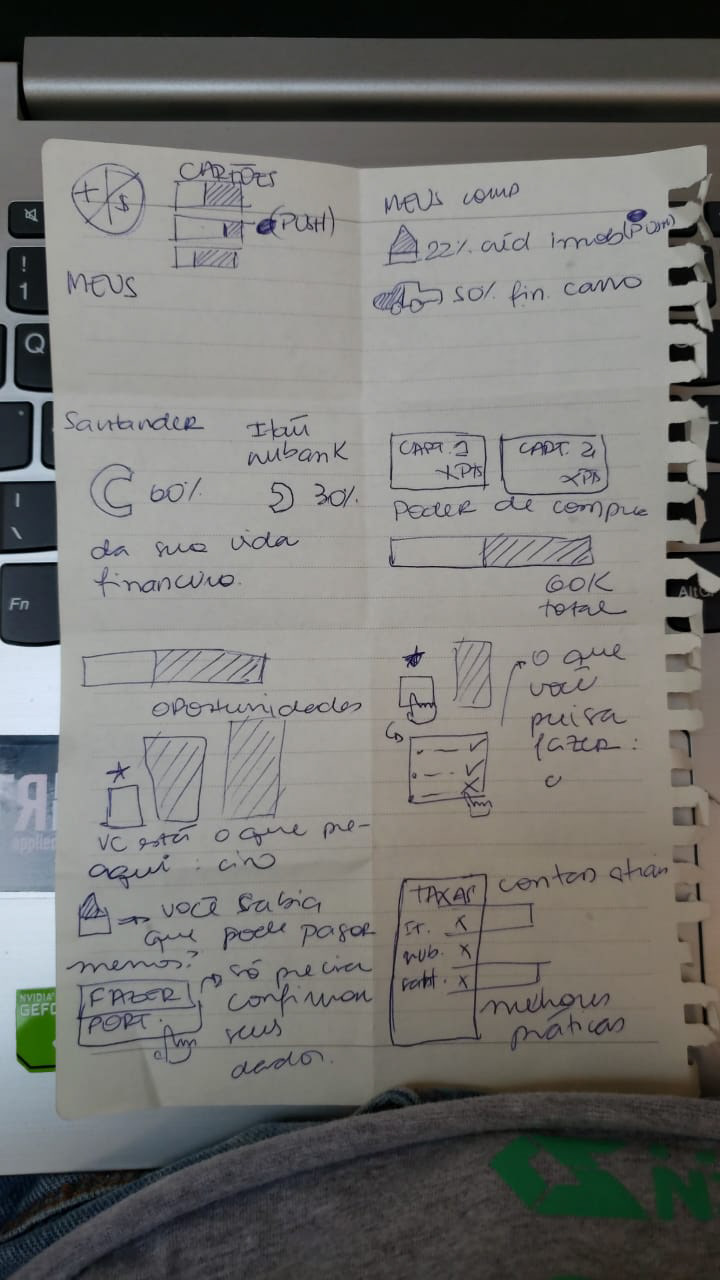 +/$
CARTÕES
(PUSH)
MEUS
MEUS COMP
22% créd imob (PUSH)
50% fin. carro
Santander
Itaú
nubank
60%
30%
da sua vida
financeira.
CART. 1
XPTS
CART. 2
XPTS
Poder de compra
60K
total
oportunidades
VC está
aqui:
o que pre-
ciso
o que
você
precisa
fazer:
você sabia
que pode pagar
menos?
FAZER
PORT.
só precisa
confirmar
seus
dados.
TAXAS
It. X
nub. X
sant. X
contas
melhores
práticas
Q
!
1
Fn
Alt
NVIDIA
GEFO